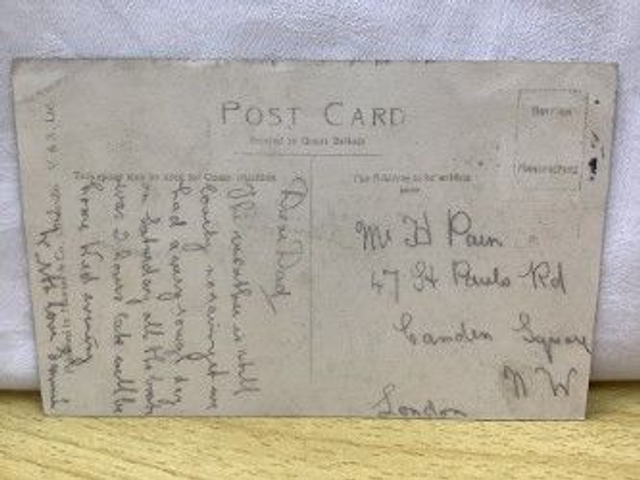 POST CARD
Printed in Great Britain
This space may be used for Communication
The Address to be written
here
Dear Dad
The weather is still
lovely no rain yet we
had a very rough day
on Saturday all the boats
was 2 hours late will be
home Wed evening
love
Mr H Pain
47 St Pauls Rd
Camden Square
N W
London